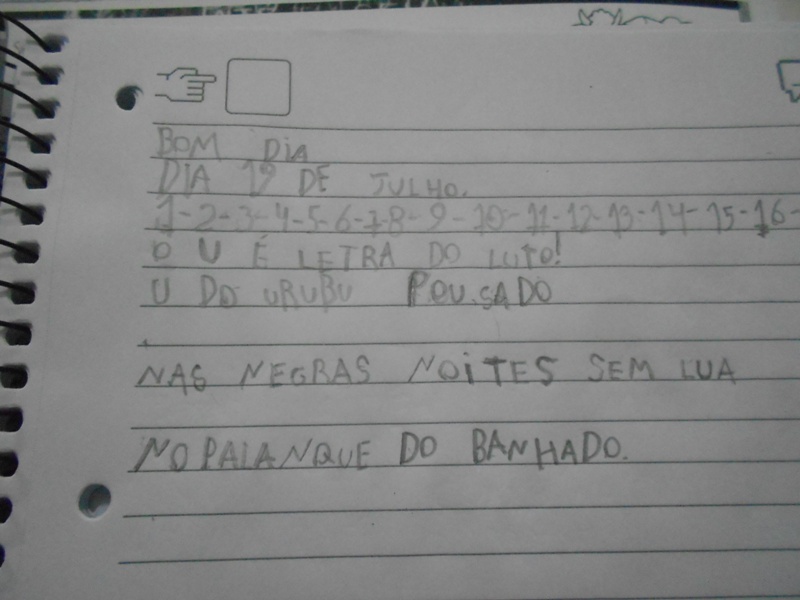 BOM DIA
DIA 19 DE JULHO.
1-2-3-4-5-6-7-8-9-10-11-12-13-14-15-16-
O U É LETRA DO LUTO!
U DO URUBU POUSADO
NAS NEGRAS NOITES SEM LUA
NO PALANQUE DO BANHADO.